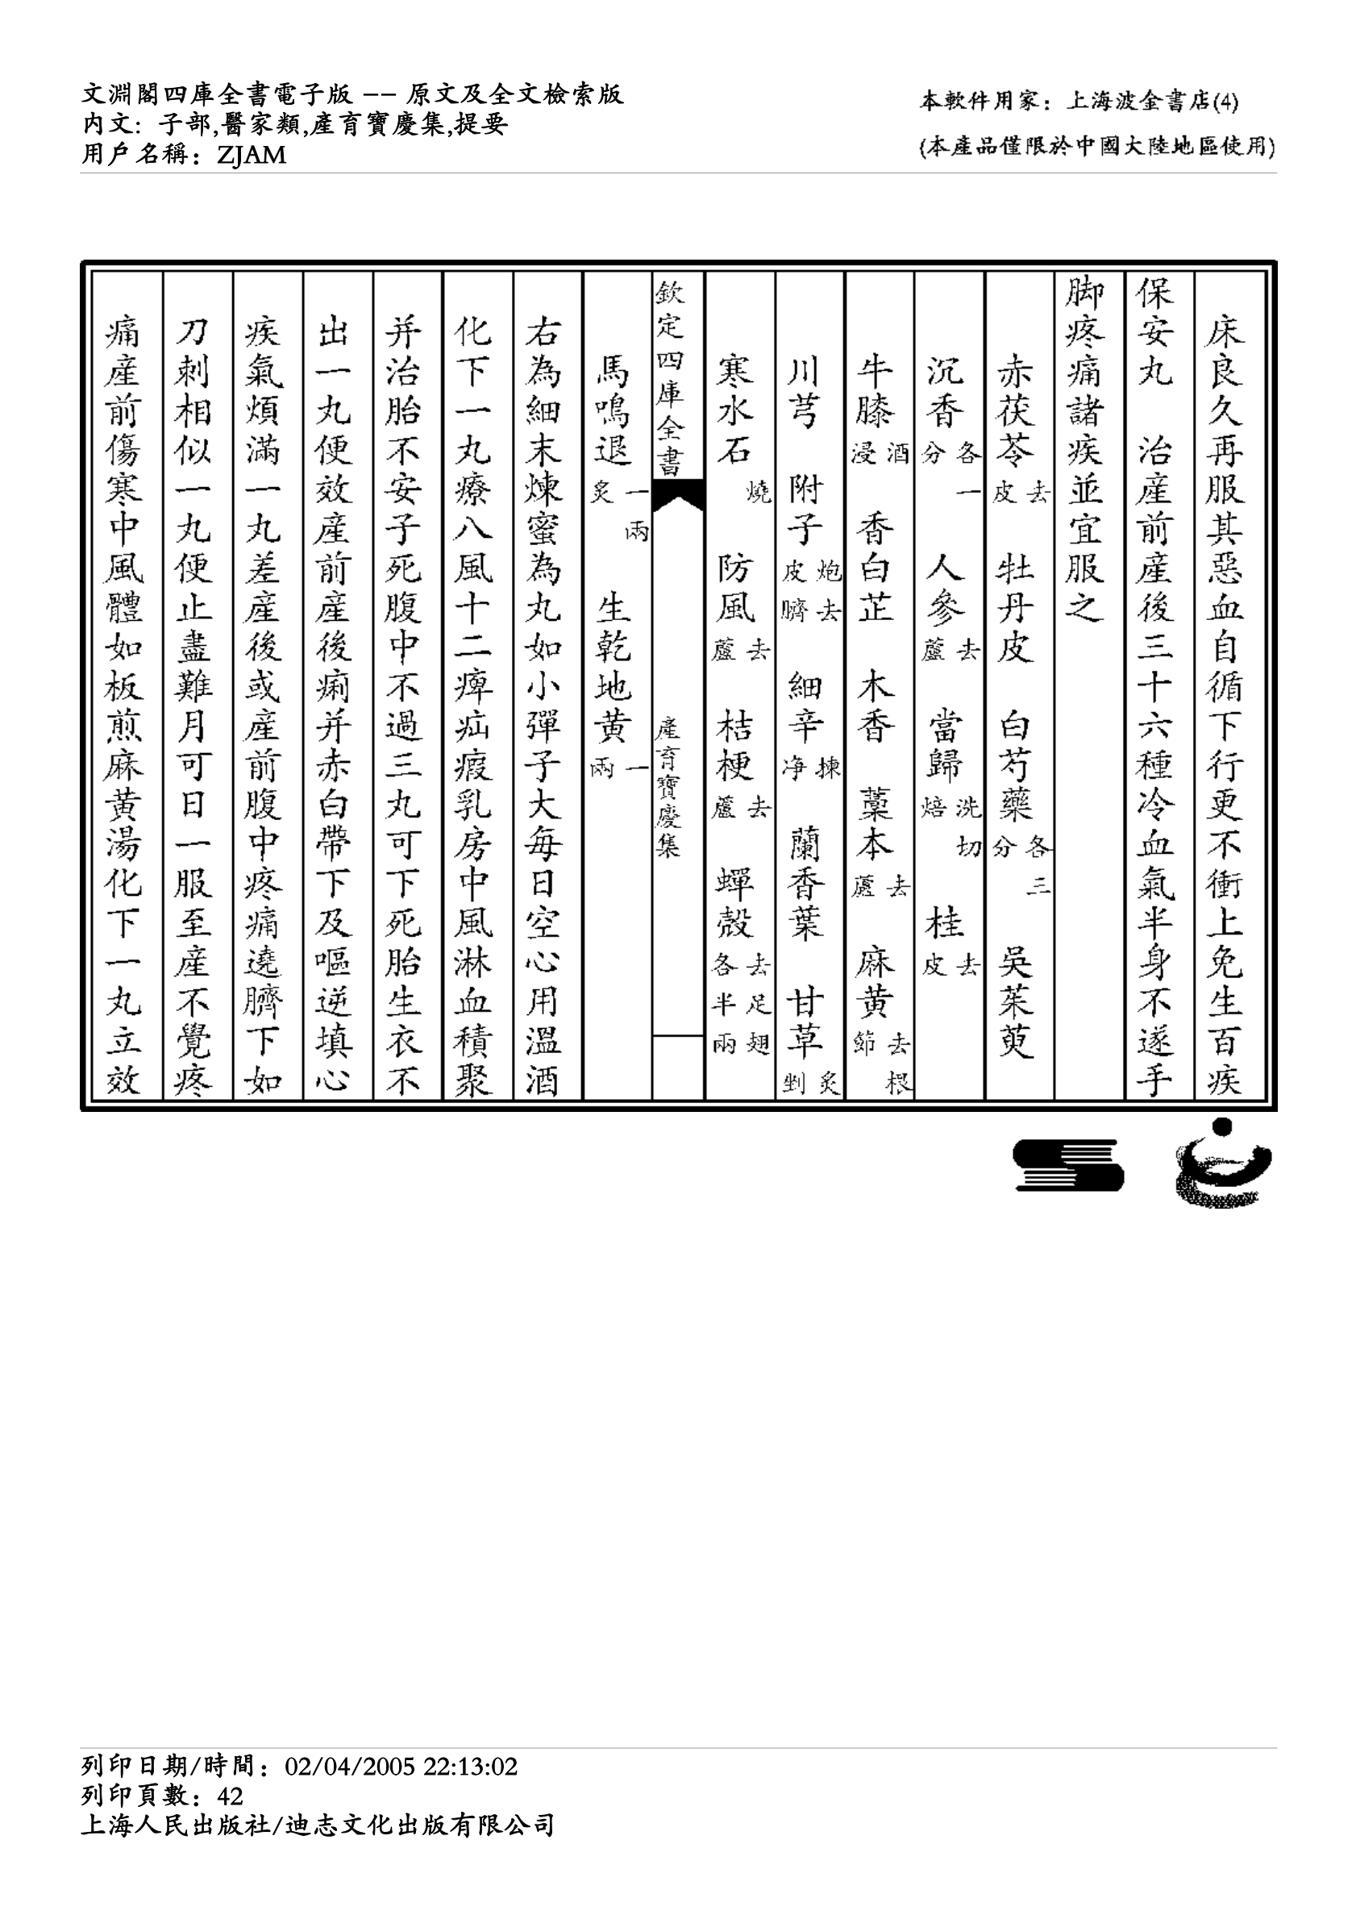 文淵閣四庫全書電子版 -- 原文及全文檢索版
内文: 子部,醫家類,產育寶慶集,提要
用戶名稱: ZJAM
本軟件用家: 上海波金書店(4)
(本產品僅限於中國大陸地區使用)
床良久再服其惡血自循下行更不衝上免生百疾
保安丸 治產前產後三十六種冷血氣半身不遂手
脚疼痛諸疾並宜服之
赤茯苓去皮 牡丹皮 白芍藥各三分 吳茱萸
沉香各一分 人參去蘆 當歸洗切焙 桂去皮
牛膝酒浸 香白芷 木香 藁本去蘆 麻黄去根節
川芎 附子炮去皮臍 細辛揀净 蘭香葉 甘草炙剉
寒水石燒 防風去蘆 桔梗去蘆 蟬殼去足翅各半兩
欽定四庫全書 產育寶慶集
馬鳴退一兩炙 生乾地黄一兩
右為細末煉蜜為丸如小彈子大每日空心用溫酒
化下一丸療八風十二痺疝瘕乳房中風淋血積聚
并治胎不安子死腹中不過三丸可下死胎生衣不
出一丸便效產前產後痢并赤白帶下及嘔逆填心
疾氣煩滿一丸差產後或產前腹中疼痛遶臍下如
刀刺相似一丸便止盡難月可日一服至產不覺疼
痛產前傷寒中風體如板煎麻黄湯化下一丸立效
列印日期/時間: 02/04/2005 22:13:02
列印頁數: 42
上海人民出版社/迪志文化出版有限公司